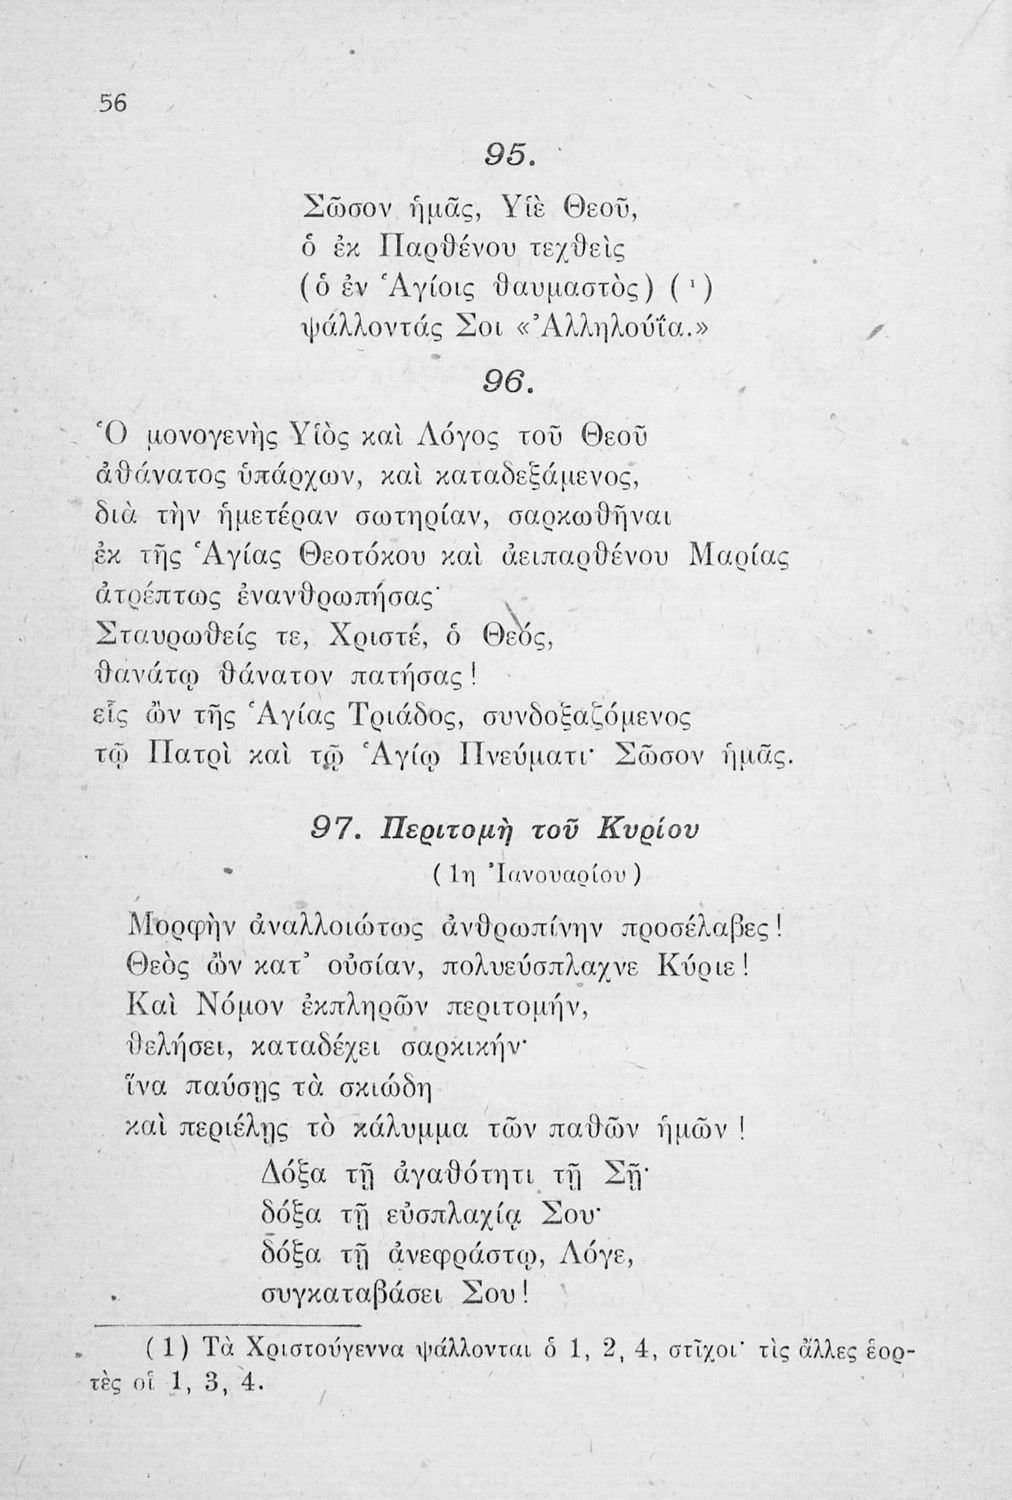 56
95.
Σῶσον ἡμᾶς, Υἱὲ Θεοῦ,
ὁ ἐκ Παρθένου τεχθεὶς
(ὁ ἐν Ἁγίοις θαυμαστὸς) (¹)
ψάλλοντάς Σοι «Ἀλληλούΐα.»
96.
Ὁ μονογενὴς Υἱὸς καὶ Λόγος τοῦ Θεοῦ
ἀθάνατος ὑπάρχων, καὶ καταδεξάμενος,
διὰ τὴν ἡμετέραν σωτηρίαν, σαρκωθῆναι
ἐκ τῆς Ἁγίας Θεοτόκου καὶ ἀειπαρθένου Μαρίας
ἀτρέπτως ἐνανθρωπήσας·
Σταυρωθείς τε, Χριστέ, ὁ Θεός,
θανάτῳ θάνατον πατήσας!
εἷς ὢν τῆς Ἁγίας Τριάδος, συνδοξαζόμενος
τῷ Πατρὶ καὶ τῷ Ἁγίῳ Πνεύματι· Σῶσον ἡμᾶς.
97. Περιτομὴ τοῦ Κυρίου
(1η Ἰανουαρίου)
Μορφὴν ἀναλλοιώτως ἀνθρωπίνην προσέλαβες!
Θεὸς ὢν κατ' οὐσίαν, πολυεύσπλαχνε Κύριε!
Καὶ Νόμον ἐκπληρῶν περιτομήν,
θελήσει, καταδέχει σαρκικήν·
ἵνα παύσῃς τὰ σκιώδη
καὶ περιέλῃς τὸ κάλυμμα τῶν παθῶν ἡμῶν!
Δόξα τῇ ἀγαθότητι τῇ Σῇ·
δόξα τῇ εὐσπλαχίᾳ Σου·
δόξα τῇ ἀνεφράστῳ, Λόγε,
συγκαταβάσει Σου!
(1) Τὰ Χριστούγεννα ψάλλονται ὁ 1, 2, 4, στῖχοι· τὶς ἄλλες ἑορ-
τὲς οἱ 1, 3, 4.